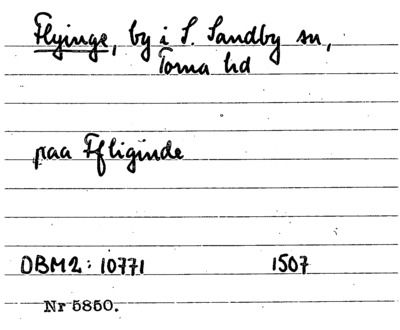 Flyinge, by i S. Sandby sn,
Torna hd
paa Ffliginde
DBM2: 10771 1507
Nr 5850.